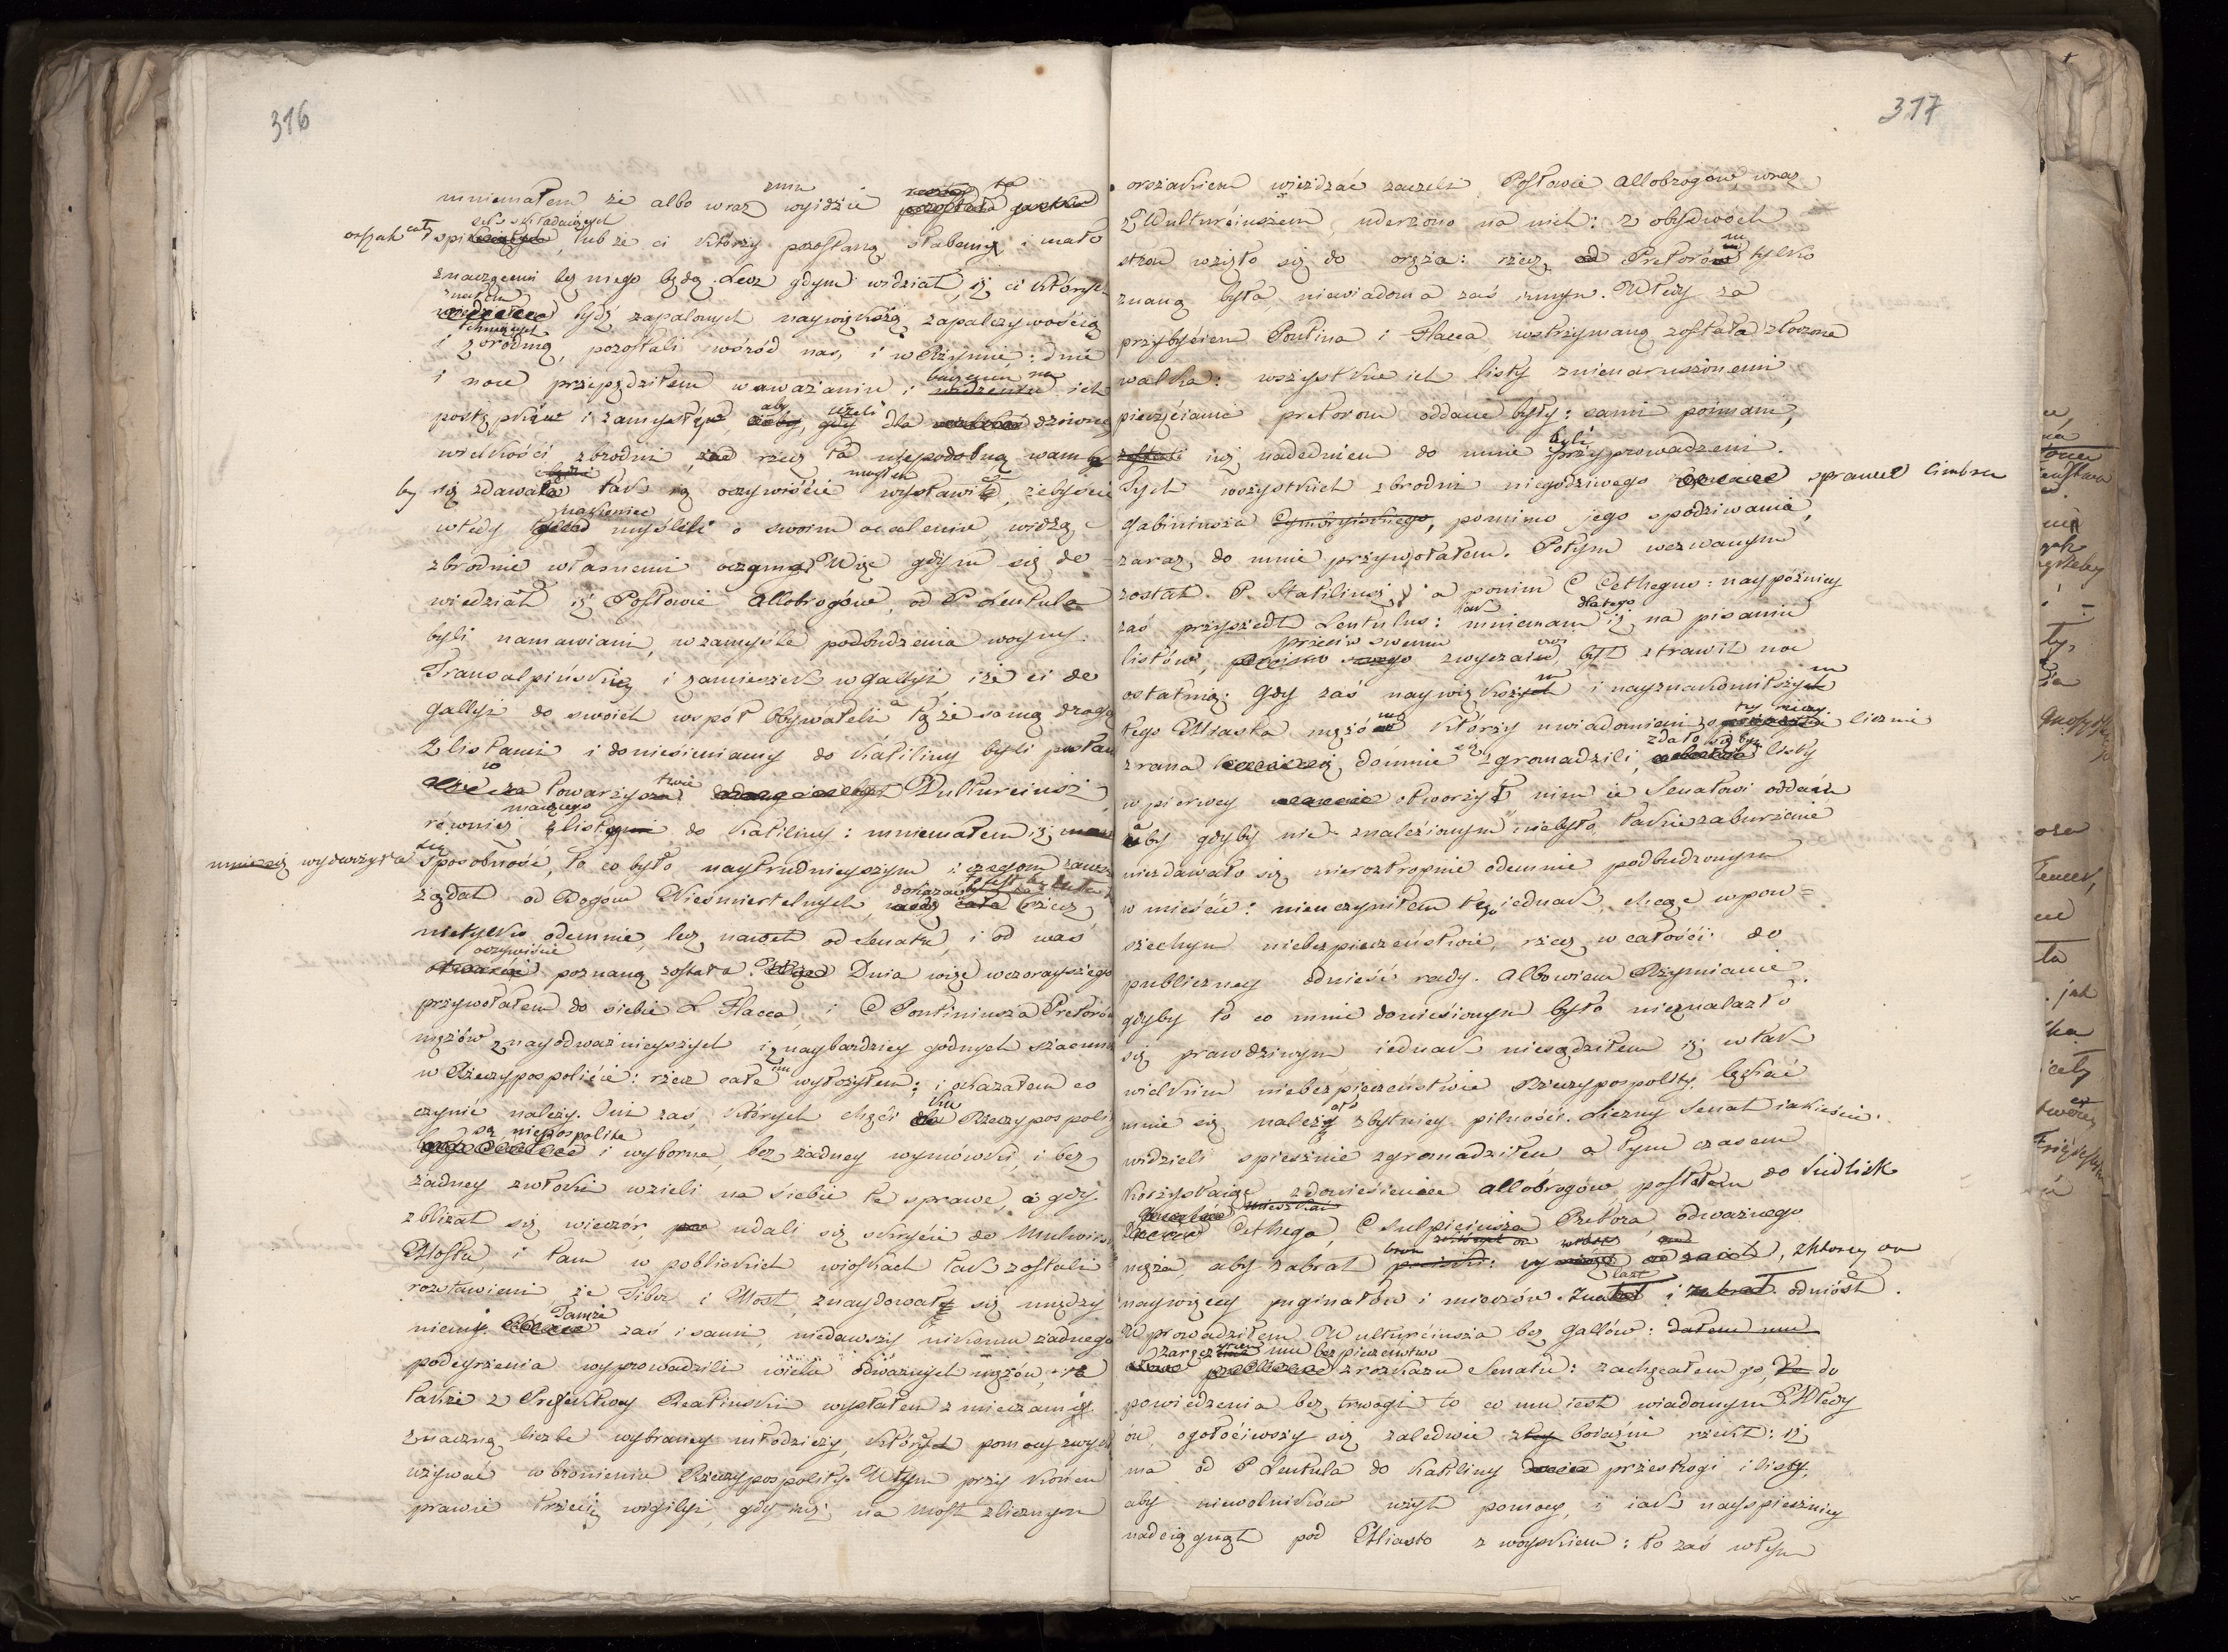 316
mniemałem że albo wraz z nim wyidzie reszta
orszak cały spiskowych, lub że ci którzy pozostaną słabemi i mało
znaczącemi bez niego będą. Lecz gdym widział, iż ci których
znałem bydź zapalonych naywiększą zapalczywością
i zbrodnią tchnących, pozostali wśród nas, i w Rzymie: dnie
i noce przepędziłem w uważaniu i baczeniu na ich
postępków i zamysłów, aby, jeżeli dla dziwney
wielkości zbrodni, rzecz ta niepodobną wam
by się zdawała tak ią oczywiście mógłem wystawić, żebyście
wtedy nakoniec myśleli o swoim ocaleniu, widząc
zbrodnie własnemi oczyma. Więc gdym się do-
wiedział iż Posłowie Allobrogów, od P. Lentula
byli namawiani, w zamyśle podbudzenia woyny
Transalpińskiey i zamieszek w Gallyi, iże ci do
Gallyi do swoich współ Obywateli a tąże samą drogą
z listami i doniesieniamy do Katiliny byli posłani
towarzystwie Vulturciusz
również maiącego list do Katiliny: mniemałem iż
mnie się wydarzyła sposobność, to co było naytrudnieyszym i czegom zawsze
żądał od Bogów Nieśmiertelnych, rzecz
nietylko odemnie, lecz nawet od Senatu, i od was
oczywiście poznaną została. Dnia więc wczorayszego
przywołałem do siebie L Flacca, i C Pontiniusza Pretorów
mężów z nayodważnieyszych i z naybardziey godnych szacunku
w Rzeczypospolicie: rzecz całę im wyłożyłem; i okazałem co
czynić należy. Oni zaś, których chęci ku Rzeczypospoli
są niepospolite i wyborne, bez żadney wymowki, i bez
żadney zwłoki wzieli na siebie te sprawę, a gdy
zbliżał się wieczór, udali się skrycie do Mulwiusz
Mostu, i tam w pobliskich wioskach tak zostali
rozstawieni, że Tibr i Most znaydowały się między
niemi. Tamże zaś i sami, niedawszy nikomu żadnego
podeyrzenia wyprowadzili wielu odważnych mężów,
także z Prefektury Reatinskiey wysłałem z mieczami
znaczną liczbe wybraney młodzieży, których pomocy zwykł
używać w bronieniu Rzeczypospolitey. W tym przy końcu
prawie trzeciey wigilyi, gdy iuż na Most z licznym

317
orszakiem wieżdzać zaczeli Posłowie Allobrogów, wraz
z Wulturciuszem, uderzono na nich: z obydwóch
stron wzięto się do oręża: rzecz Pretorom tylko
znaną była niewiadoma zaś innym. Wtedy za
przybyciem Pontina i Flacca wstrzymaną została złoczona
walka: wszystkie ich listy z nienaruszonemi
pieczęciami pretorom oddane były: sami poimani,
iuż nadedniem do mnie byli przyprowadzeni.
Tych wszystkich zbrodni niegodziwego sprawce Cimbra
Gabiniusza Cymbryiskiego, pomimo jego spodziwania,
zaraz do mnie przywołałem. Potym wezwanym
został P. Statiliusz, a ponim C Cethegus: naypóźniey
zaś przyszedł Lentulus: iak mniemam dlatego iż na pisaniu
listów, przeciw swemu zwyczaiowi był strawił noc
ostatnią: Gdy zaś naywiększym i nayznakomitszym
tego Miasta mężom którzy uwiadomieni o tey rzeczy licznie
zrana do mnie się zgromadzili, zdało się bym listy
w pierwey otworzył, nim ie Senatowi oddam
aby gdyby nic znalezionym niebyło, takie zaburzenie
niezdawało się nieroztropnie odemnie podbudzonym
w mieście: nieuczyniłem tego iednak, chcąc w pow=
szechnym niebezpieczeństwie, rzecz w całości do
publiczney odnieść rady. Albowiem Rzymianie
gdyby to co mnie doniesionym było nieznalazło
się prawdziwym iednak niesądziłem iż w tak
wielkim niebezpieczeństwie Rzeczypospolity lękać
mnie się należało zbytniey pilności. Liczny Senat iakieście
widzieli spiesznie zgromadziłem a tym czasem
korzystaiąc z doniesienia Allobrogów, posłałem do siedlisk
Cethega, C Sulpiciusza Pretora odważnego
męża, aby zabrał broń, z ktorey on
naywięcey puginałów i mieczów znalazł i odniósł.
Wprowadziłem Wulturciusza bez Gallów: dałem mu
zaręczenie mu bezpieczeństwo z rozkazu Senatu: zachęcałem go do
powiedzenia bez trwogi to co mu iest wiadomym. Wtedy
on, ogołociwszy się zaledwie z boiaźni rzekł: iż
ma od P Lentula do Katiliny przestrogi i listy,
aby niewolników użył pomocy, i iak nayspieszniey
nadciągnął pod Miasto z woyskiem: to zaś w tym